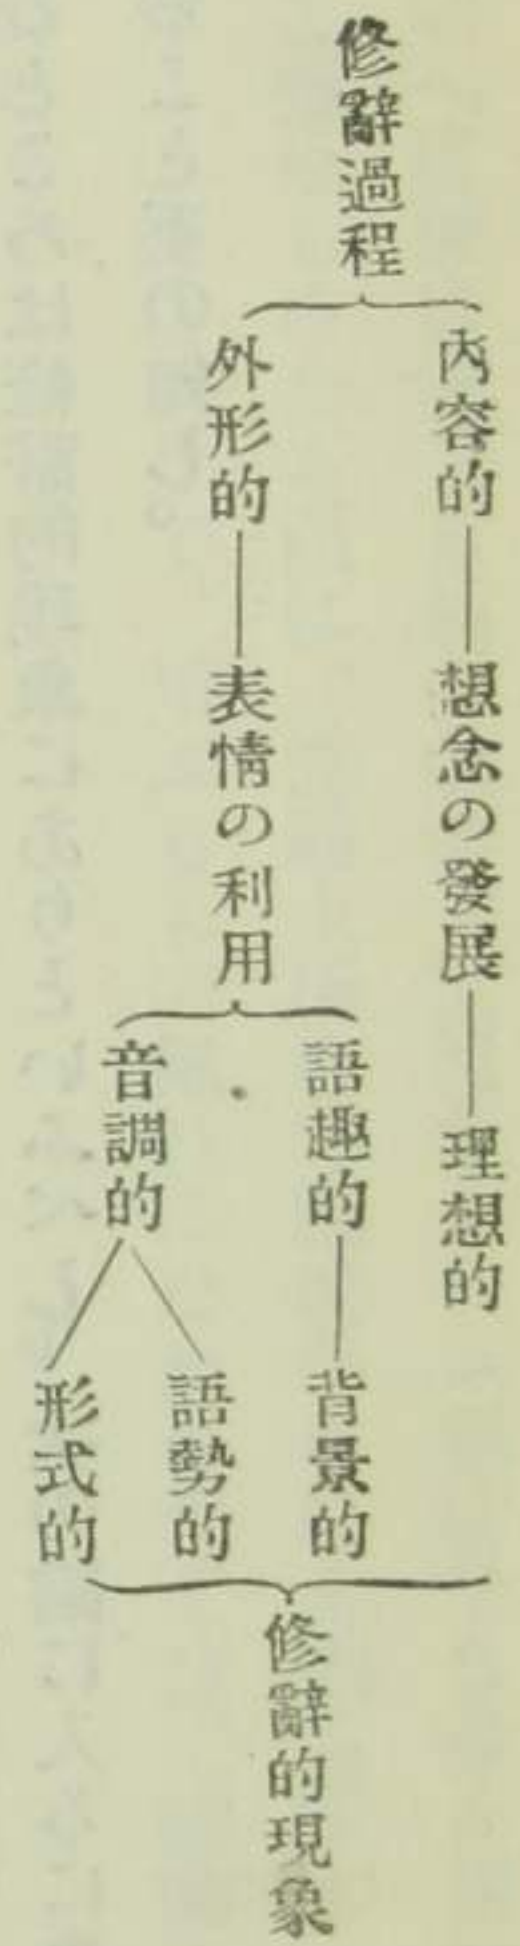 修辭過程
內容的
想念の發展
理想的
外形的
表情の利用
語趣的
背景的
音調的
語勢的
形式的
修辭的現象